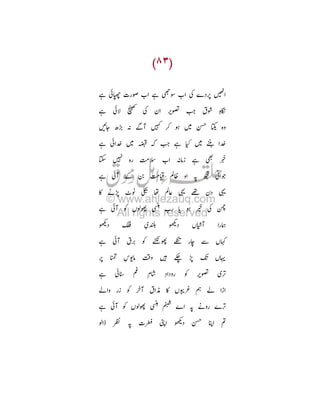 (۸۳)
اٹھیں پردے کی اب سوجھی ہے اب صورت چھپائی ہے
نگاہ شوق جب تصویر ان کی کھینچ لائی ہے
وہ یکتا حسن میں ہو کر کہیں آگے نہ بڑھ جائیں
خدا بنے میں کیا ہے کہ جب قبضہ میں خدائی ہے
خبر بھی ہے زمانہ اب سلامت رہ نہیں سکتا
جوانی ہو ظالم بن آئی ہے
یہی دن تھے یہی عالم تھا بجلی ٹوٹ پڑنے کا
چمن کی خیر ہو یا رب ہنسی پھولوں کو آئی ہے
ہمارا آشیاں دیکھو بلندی فلک دیکھو
کہاں سے چار تنکے پھونکنے کو برق آئی ہے
یہاں تک پڑ چکے ہیں وقت مایوس تمنا پر
تری تصویر کو روداد شام غم سنائی ہے
اڑا لے ہم غریبوں کا مذاق آخر کو زر والے
ترے رونے پہ اے شبنم ہنسی پھولوں کو آئی ہے
تم اپنا حسن دیکھو اپنی فطرت پہ نظر ڈالو
© www.ahlezauq.com
All rights reserved